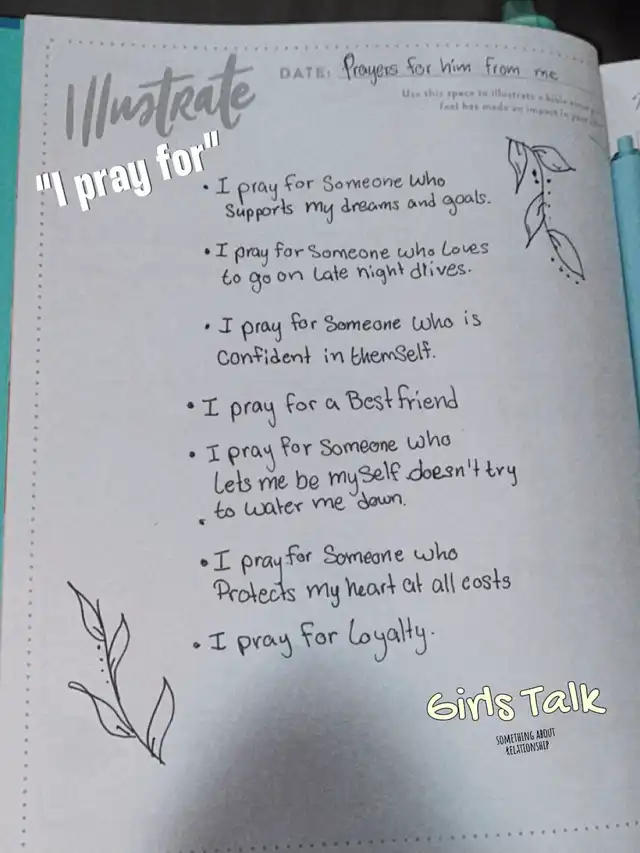 Illustrate
DATE: Prayers for him from me
Use this space to illustrate a bible
feel has made an impact in your
"I pray for"
• I pray for Someone who
Supports my dreams and goals.
• I pray for Someone who Loves
to go on Late night drives.
• I pray for Someone who is
Confident in themself.
• I pray for a Best friend
• I pray for Someone who
Lets me be myself doesn't try
• to water me down.
• I pray for Someone who
Protects my heart at all costs
• I pray for Loyalty.
Girls Talk
SOMETHING ABOUT
RELATIONSHIP